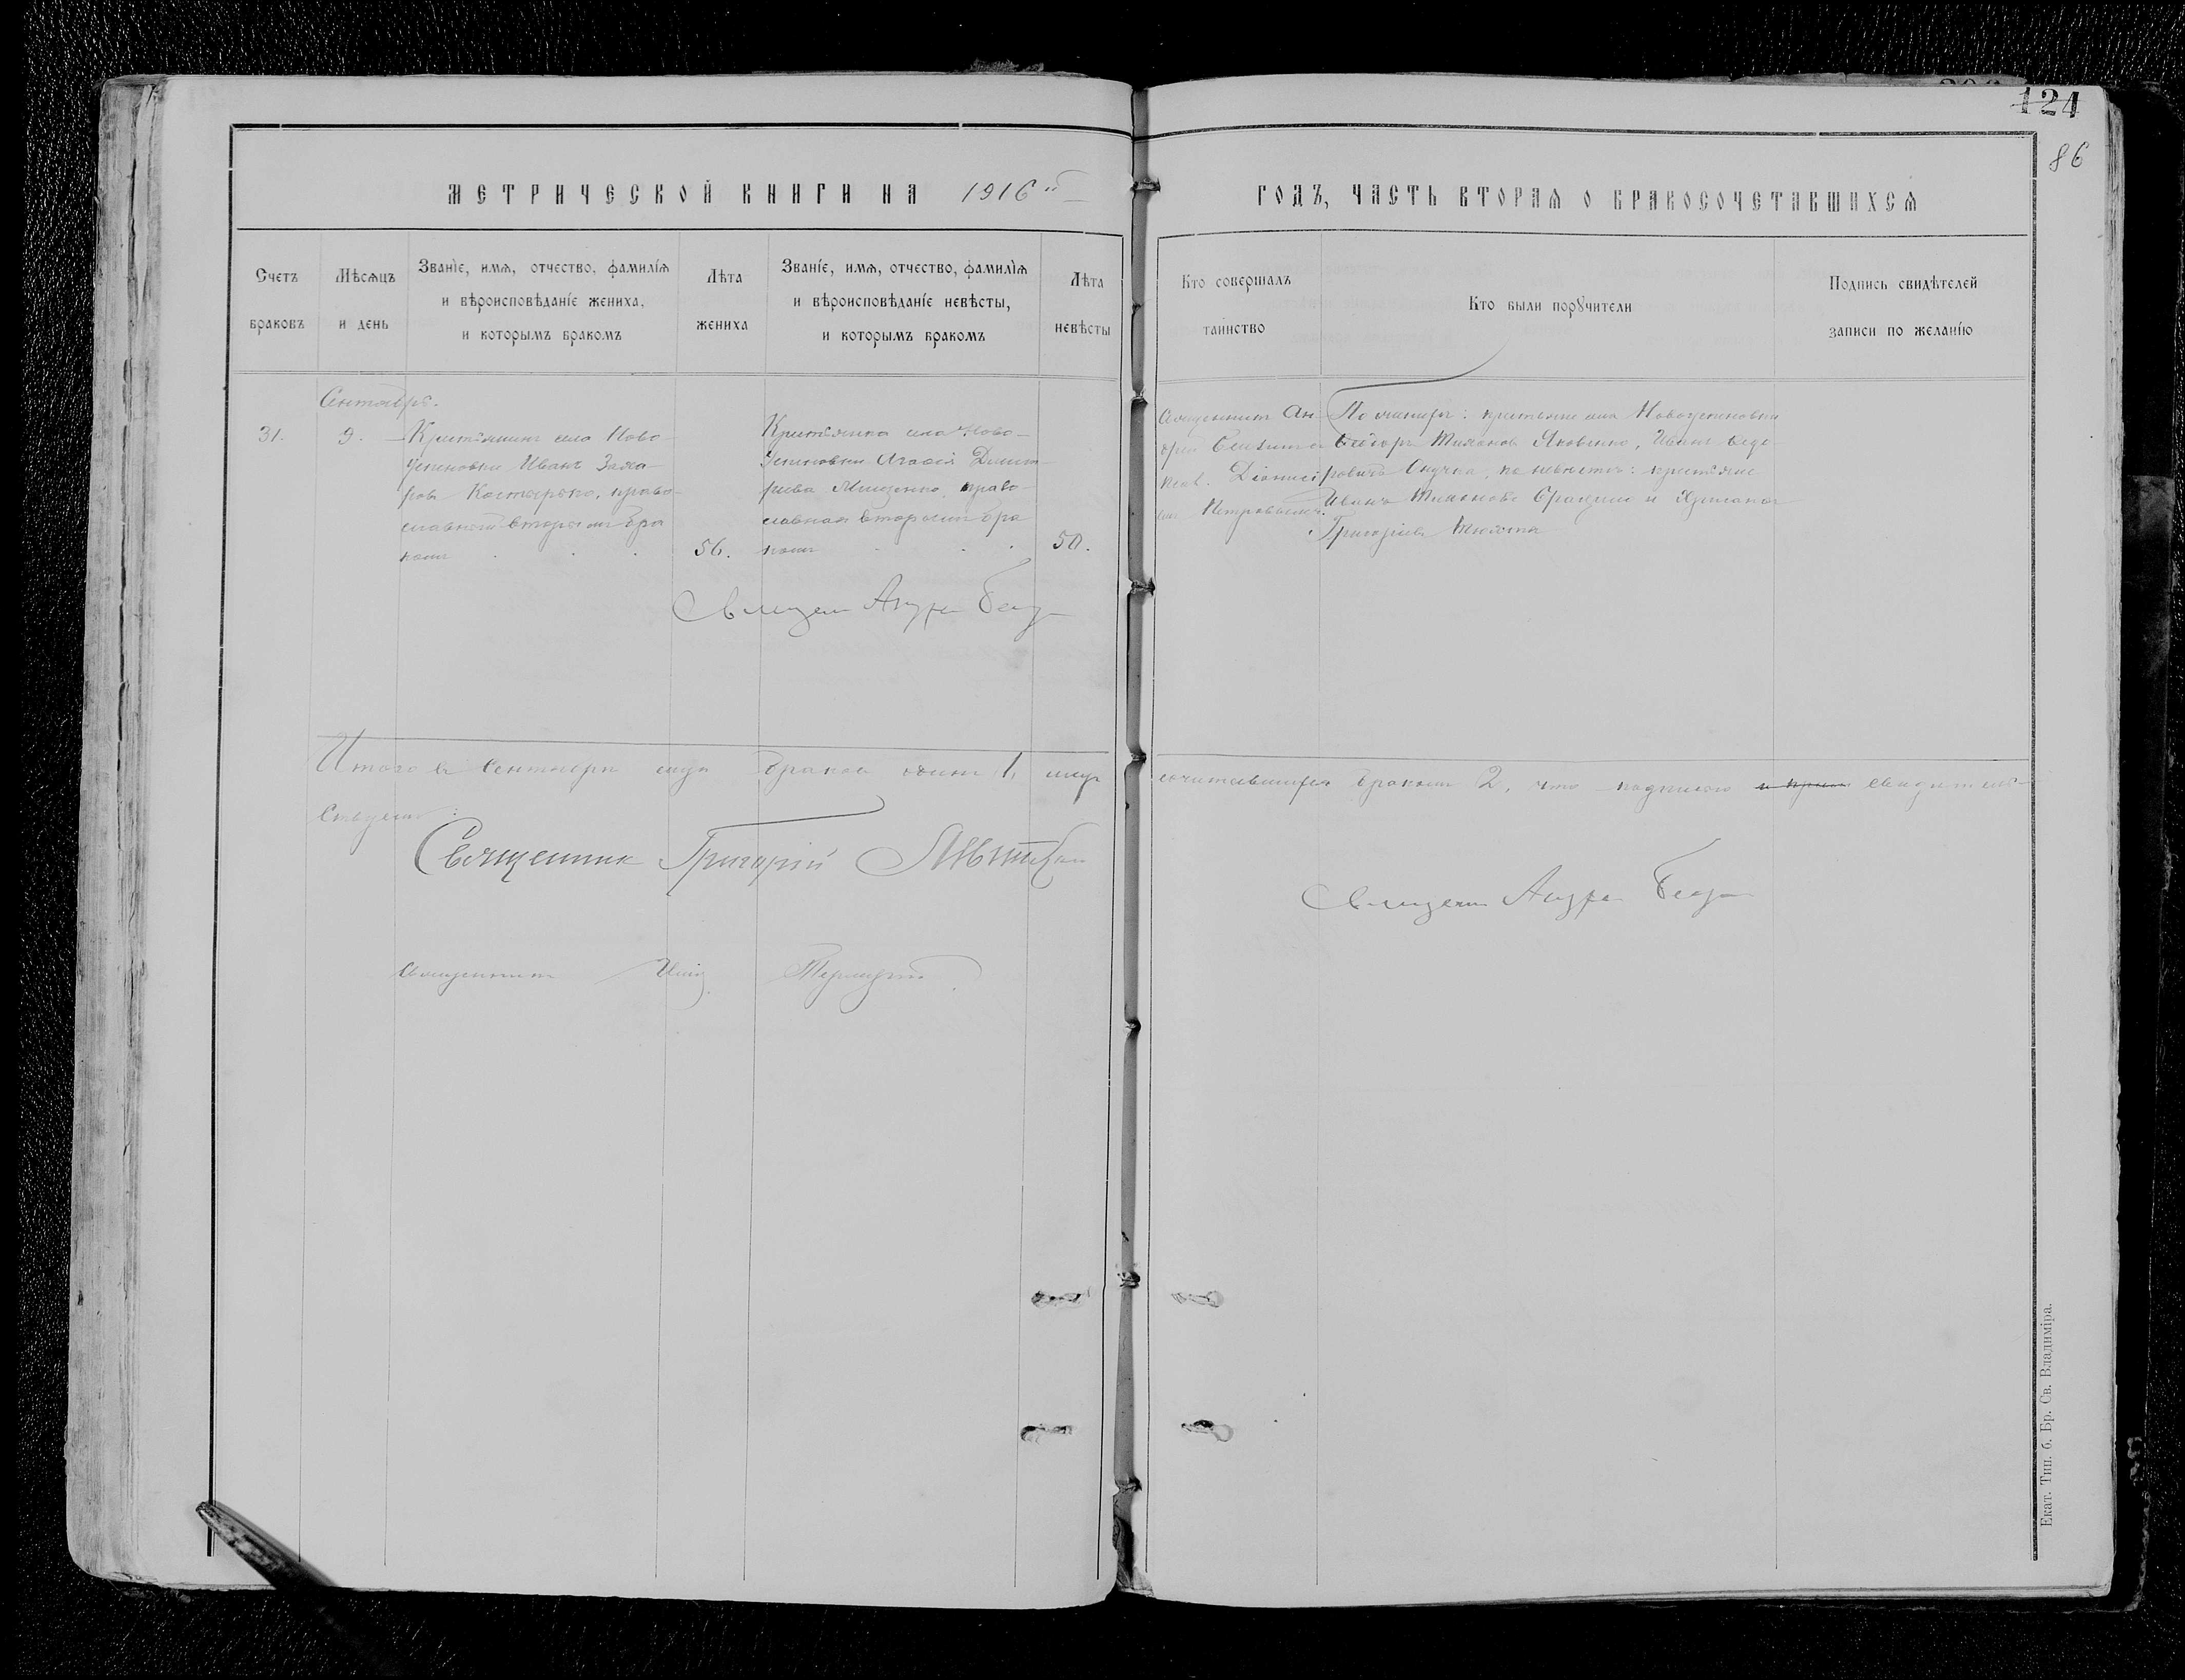 124
86
МЕТРИЧЕСКОЙ КНИГИ НА 1916 й
ГОДЪ, ЧАСТЬ ВТОРАЯ О БРАКОСОЧЕТАВШИХСЯ
Счетъ
браковъ
Мѣсяцъ
и день
Званіе, имя, отчество, фамилія
и вѣроисповѣданіе жениха,
и которымъ бракомъ
Лѣта
жениха
Званіе, имя, отчество, фамилія
и вѣроисповѣданіе невѣсты,
и которымъ бракомъ
Лѣта
невѣсты
Кто совершалъ
таинство
Кто были поручители
Подпись свидѣтелей
записи по желанію
Сентябрь.
31.
9.
Крестьянинъ села Ново-
успеновки Иванъ Заха-
ровъ Костырко, право-
славный вторымъ бра
комъ
56.
Крестьянка села Ново-
Успеновки Агафія Димит-
ріева Мищенко, право-
славная вторымъ бра
комъ
50.
Священникъ Ан-
дрей
Діонисі
Петровымъ.
По женихѣ: крестьяне села Новоуспеновки
Ѳеодоръ Яковенко, Иванъ Ѳедо-
ровичъ по невѣстѣ: крестьяне
Иванъ и
Григоріевъ
Священ Андре
Итого въ Сентябрѣ м-цѣ браковъ одинъ 1, лицъ
сочетавшихся бракомъ 2, что подписью свидѣтель-
ствуемъ:
Священник Григорій
Священ Андре
Священникъ
Екат. Тип. б. Бр. Св. Владиміра.